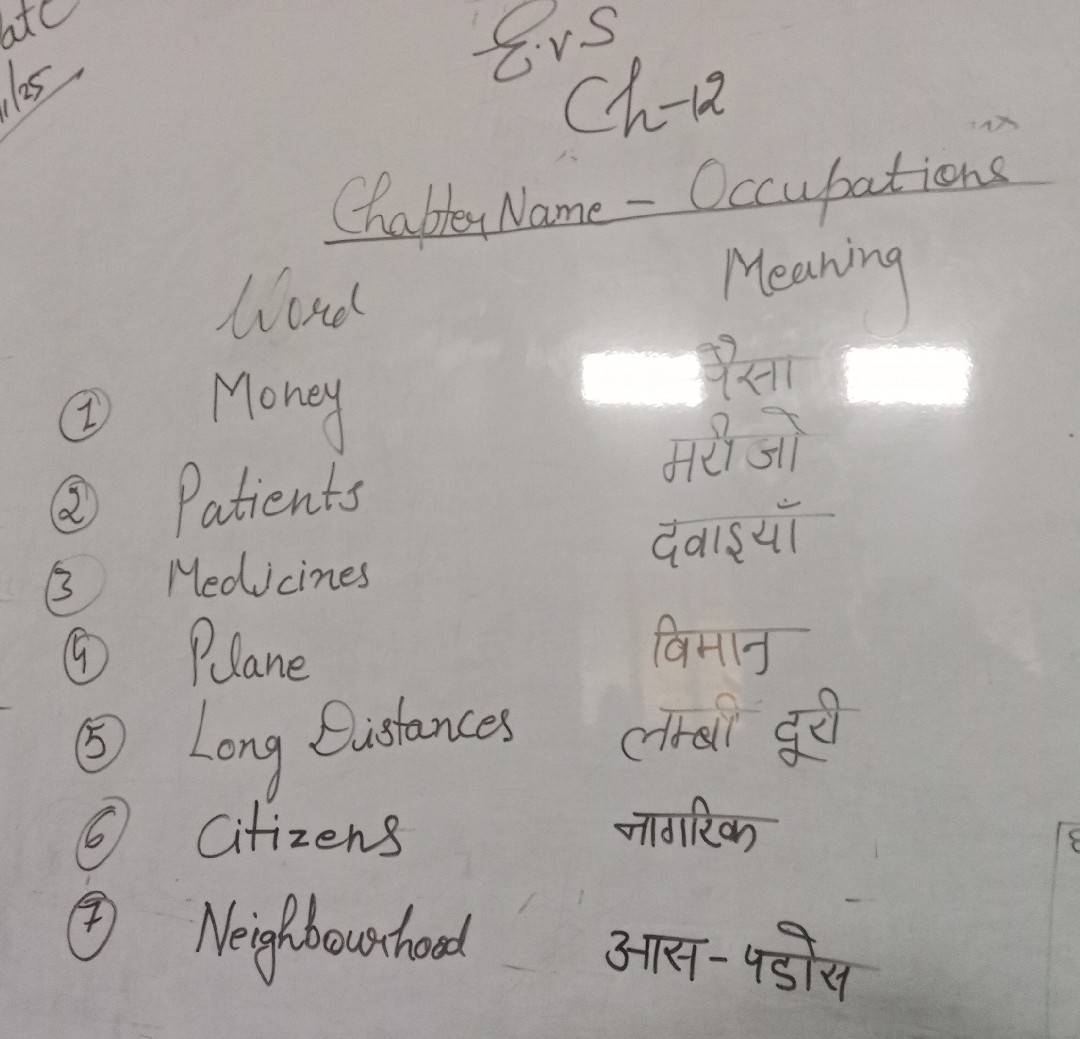 E.v S
Ch-12
Chapter Name - Occupations
Word Meaning
① Money पैसा
② Patients मरीजो
③ Medicines दवाइयाँ
④ Plane विमान
⑤ Long Distances लम्बी दूरी
⑥ Citizens नागरिक
⑦ Neighbourhood आस-पडोस